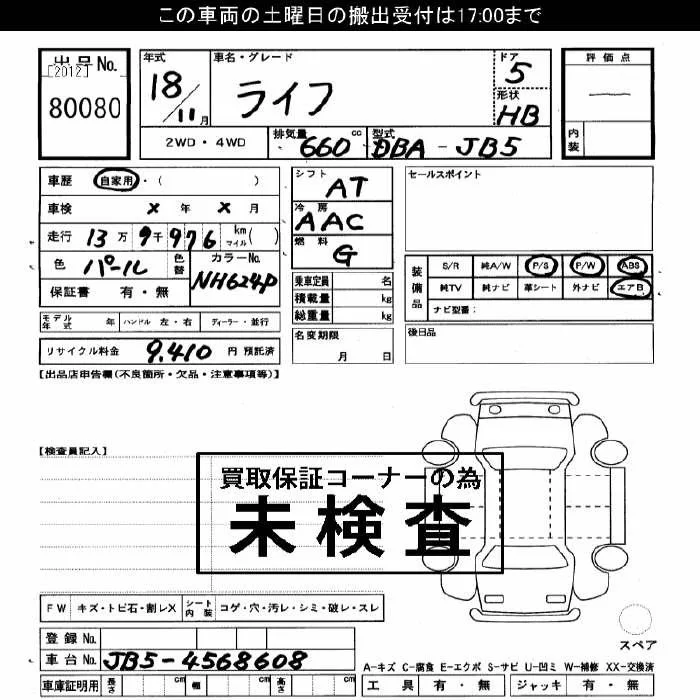 この車両の土曜日の搬出受付は17:00まで
出品No.
[2012]
80080
年式
18/11月
車名・グレード
ライフ
ドア
5
形状
HB
評価点
—
内装
2WD・4WD
排気量 660 cc
型式 DBA-JB5
車歴 自家用・( )
車検 X 年 X 月
走行 13万9千976 km マイル( )
色 パール 色替 カラーNo. NH624P
保証書 有・無
シフト
AT
冷房
AAC
燃料
G
乗車定員 名
積載量 kg
総重量 kg
セールスポイント
装備品
S/R 純A/W P/S P/W ABS
純TV 純ナビ 革シート 外ナビ エアB
ナビ型番:
モデル年式 年 ハンドル 左・右 ディーラー・並行
名変期限
月 日
後日品
リサイクル料金 9,410 円 預託済
【出品店申告欄(不良箇所・欠品・注意事項等)】
【検査員記入】
買取保証コーナーの為
未検査
FW キズ・トビ石・割レX シート内装 コゲ・穴・汚レ・シミ・破レ・スレ
スペア
登録No.
車台No. JB5-4568608
A-キズ C-腐食 E-エクボ S-サビ U-凹ミ W-補修 XX-交換済
車庫証明用 長さ cm 幅 cm 高さ cm
工具 有・無 ジャッキ 有・無